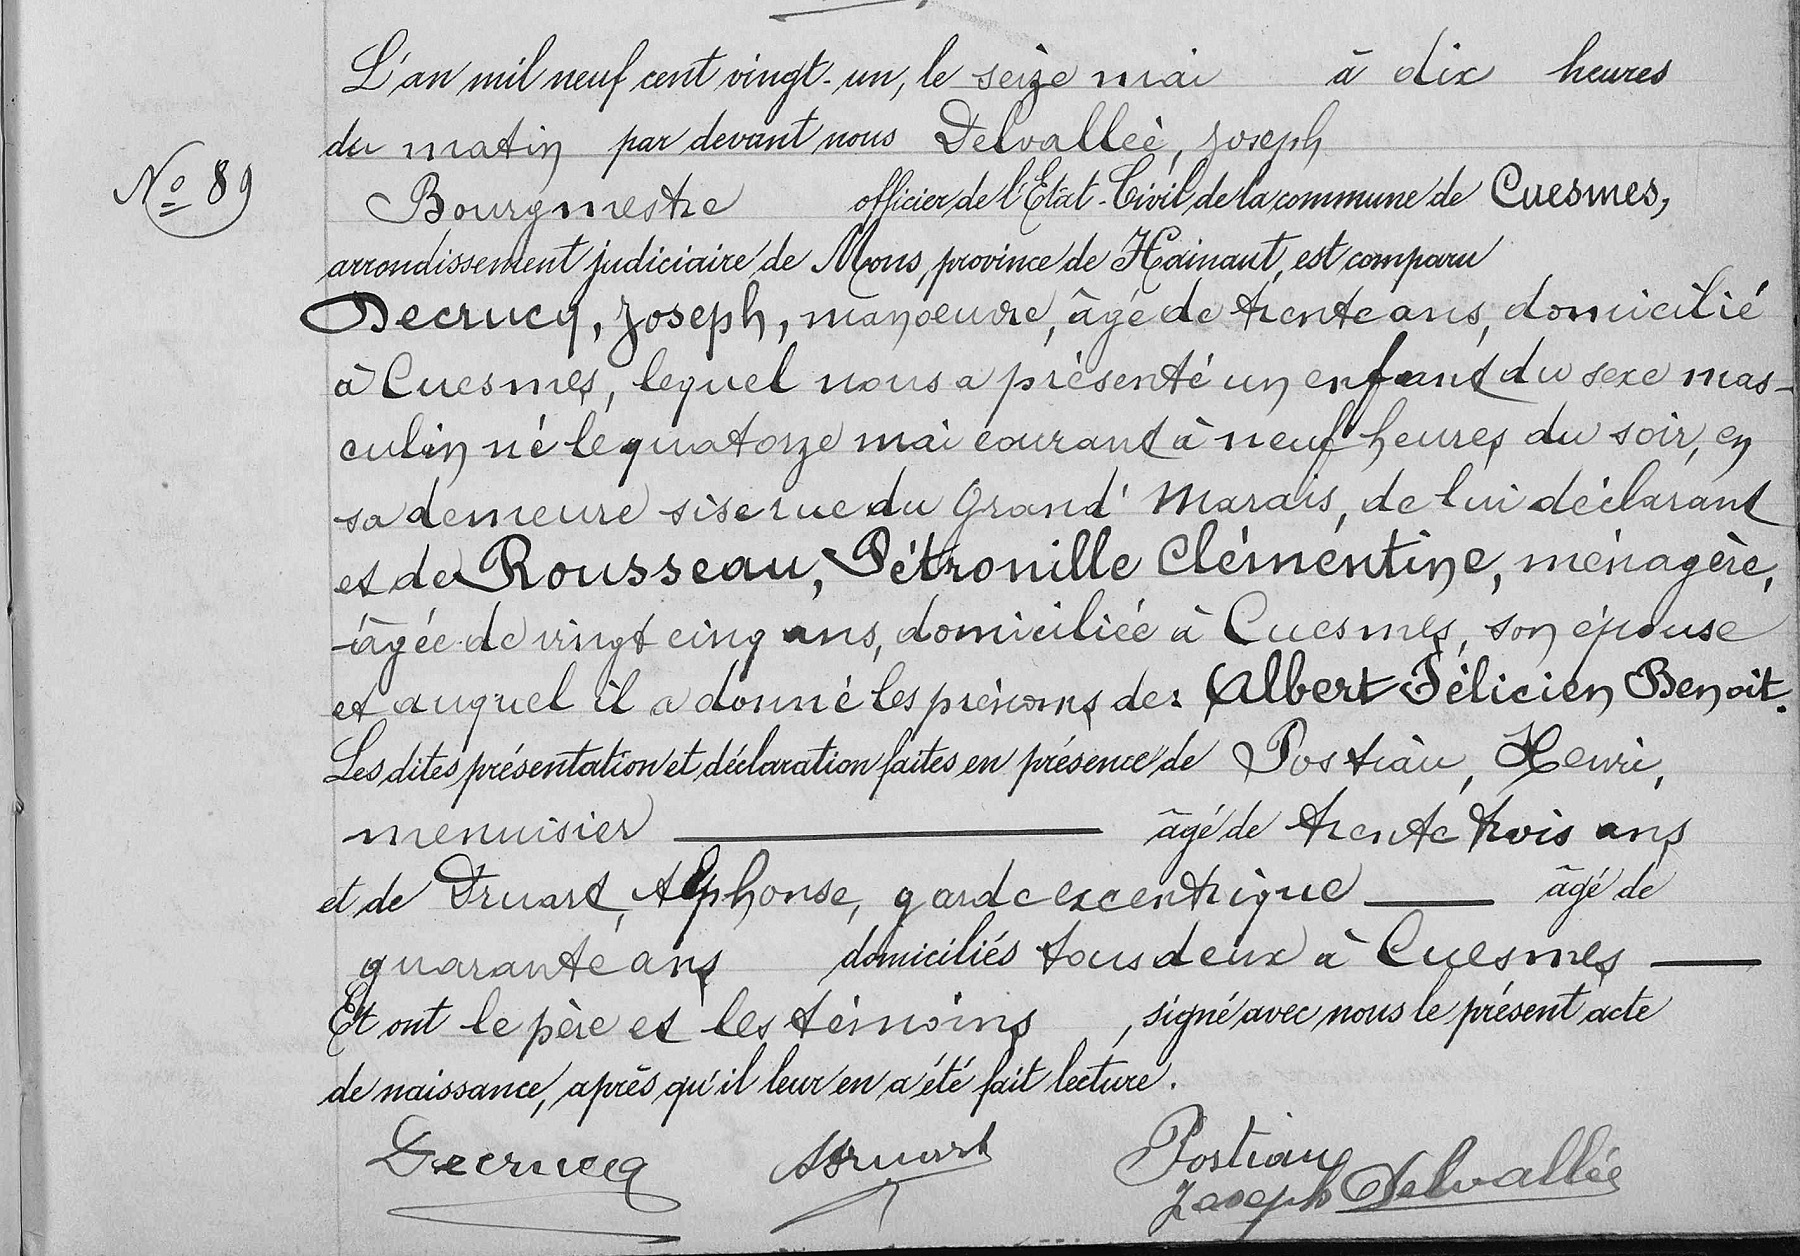 L'an mil neuf cent vingt-un, le seize mai à dix heures
du matin par devant nous Delvallée, Joseph
Nº 89
Bourgmestre officier de l'Etat-Civil de la commune de Cuesmes,
arrondissement judiciaire de Mons, province de Hainaut, est comparu
Decrucq, Joseph, manoeuvre, âgé de trente ans, domicilié
à Cuesmes, lequel nous a présenté un enfant du sexe mas-
culin né le quatorze mai courant à neuf heures du soir, en
sa demeure sise rue du Grand' Marais, de lui déclarant
et de Rousseau, Pétronille Clémentine, ménagère,
âgée de vingt cinq ans, domiciliée à Cuesmes, son épouse
et auquel il a donné les prénoms de: Albert Félicien Benoit.
Les dites présentation et déclaration faites en présence de Postiau, Henri,
menuisier âgé de trente trois ans
et de Druart, Alphonse, garde excentrique âgé de
quarante ans domiciliés tous deux à Cuesmes
Et ont le père et les témoins, signé avec nous le présent acte
de naissance, après qu'il leur en a été fait lecture.
Decrucq ADruart Postiau
Joseph Delvallée